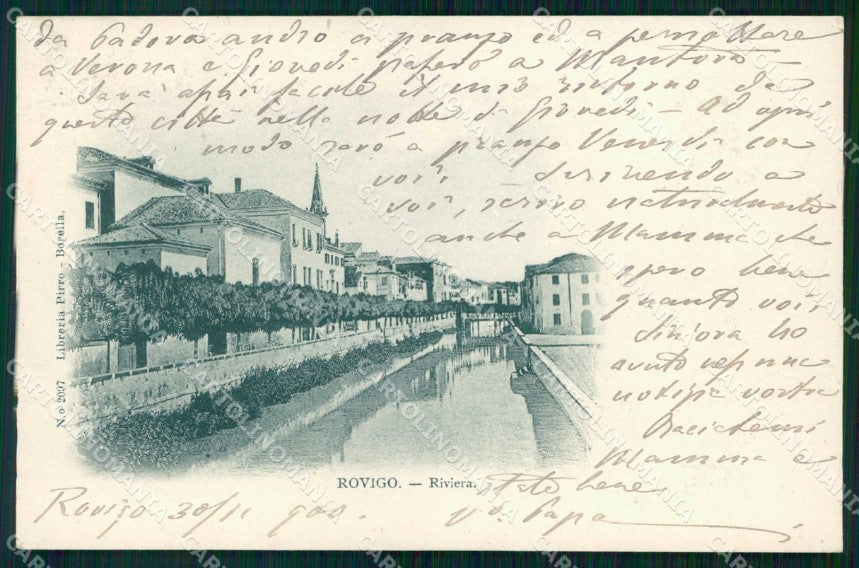 da Padova andrò a pranzo ed a pernottare
a Verona e Giovedì passerò a Mantova —
Sarà assai facile il mio ritorno da
questa città nella notte di Giovedì — Ad ogni
modo sarò a pranzo Venerdì con
voi. Scrivendo a
voi, scrivo naturalmente
anche a Mamma che
spero bene
quanto voi.
Finora ho
avuto
notizia vostra
Baciatemi
Mamma e
state bene
Vo. Papa
Rovigo 30/11 900.
ROVIGO. — Riviera.
N.o 2097 Libreria Pirro - Borella.
CARTOLINOMANIA